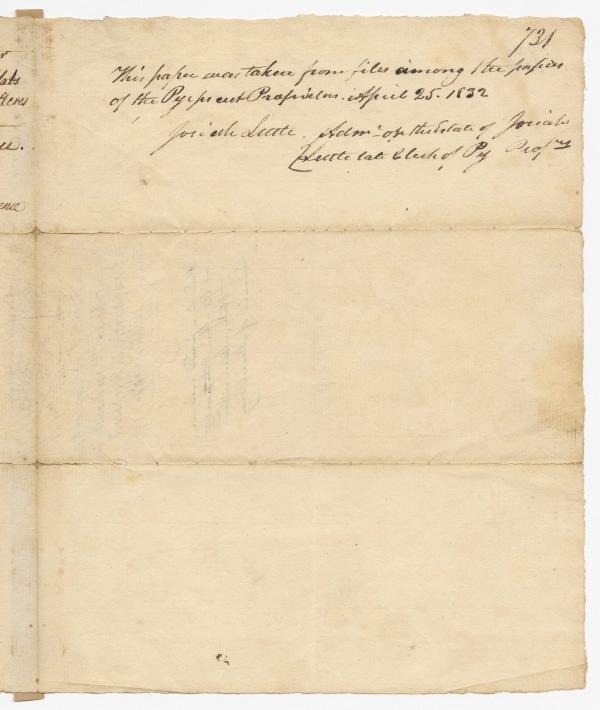 731
This paper was taken from files among the papers
of the Pejepscut Proprietors. April 25. 1832
Josiah Little. Admr. on the Estate of Josiah
Little late Clerk of Pej Proprs
lats
Acres
ence